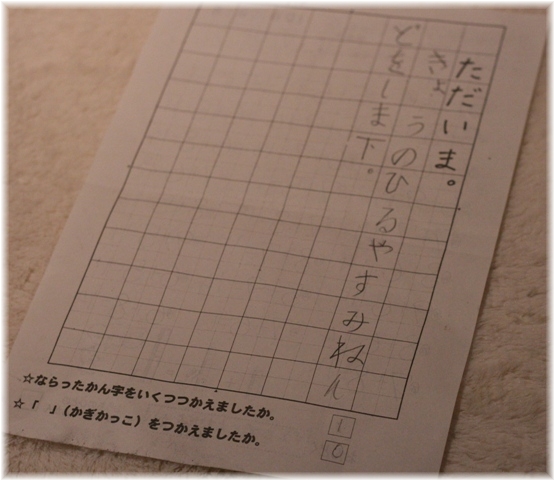 ただいま。
きょうのひるやすみねん
どをしま下。
☆ならったかん字をいくつつかえましたか。
1
☆「　」(かぎかっこ)をつかえましたか。